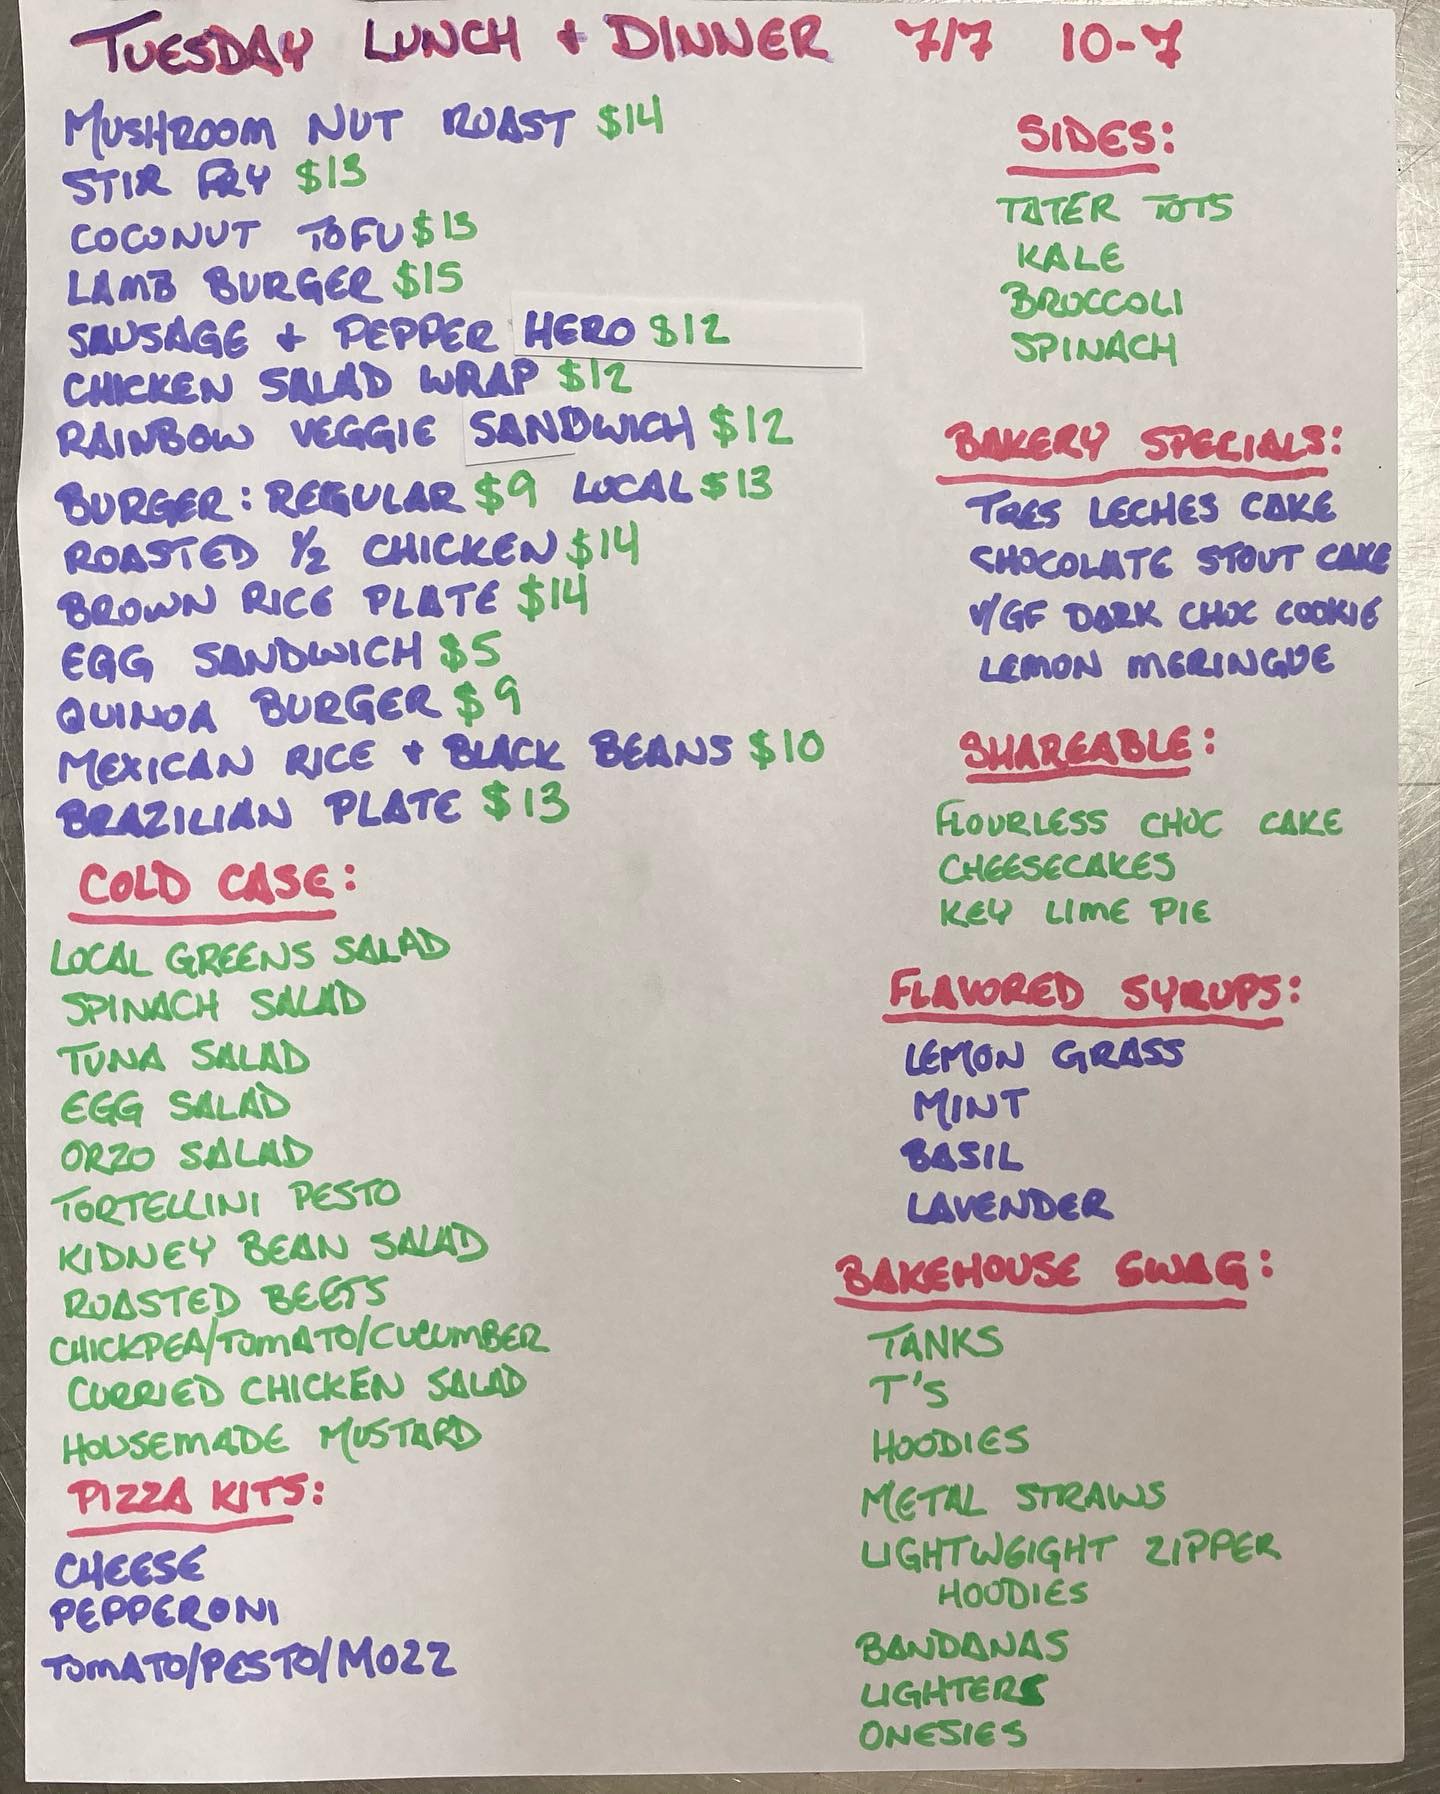 TUESDAY LUNCH + DINNER 7/7 10-7
MUSHROOM NUT ROAST $14
STIR FRY $13
COCONUT TOFU $13
LAMB BURGER $15
SAUSAGE + PEPPER HERO $12
CHICKEN SALAD WRAP $12
RAINBOW VEGGIE SANDWICH $12
BURGER: REGULAR $9 LOCAL $13
ROASTED 1/2 CHICKEN $14
BROWN RICE PLATE $14
EGG SANDWICH $5
QUINOA BURGER $9
MEXICAN RICE + BLACK BEANS $10
BRAZILIAN PLATE $13
COLD CASE:
LOCAL GREENS SALAD
SPINACH SALAD
TUNA SALAD
EGG SALAD
ORZO SALAD
TORTELLINI PESTO
KIDNEY BEAN SALAD
ROASTED BEETS
CHICKPEA/TOMATO/CUCUMBER
CURRIED CHICKEN SALAD
HOUSEMADE MUSTARD
PIZZA KITS:
CHEESE
PEPPERONI
TOMATO/PESTO/MOZZ
SIDES:
TATER TOTS
KALE
BROCCOLI
SPINACH
BAKERY SPECIALS:
TRES LECHES CAKE
CHOCOLATE STOUT CAKE
V/GF DARK CHOC COOKIE
LEMON MERINGUE
SHAREABLE:
FLOURLESS CHOC CAKE
CHEESECAKES
KEY LIME PIE
FLAVORED SYRUPS:
LEMON GRASS
MINT
BASIL
LAVENDER
BAKEHOUSE SWAG:
TANKS
T'S
HOODIES
METAL STRAWS
LIGHTWEIGHT ZIPPER
HOODIES
BANDANAS
LIGHTERS
ONESIES